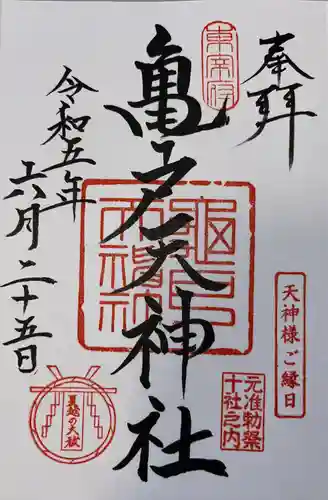 奉拝
東宰府
亀戸天神社
亀戸天神社
天神様ご縁日
元准勅祭
十社之内
令和五年
六月二十五日
夏越の大祓